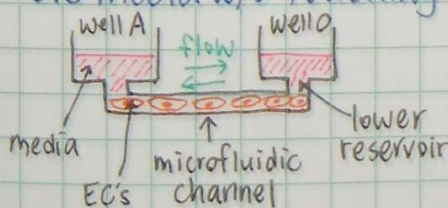 well A
well O
flow
media
EC's
microfluidic
channel
lower
reservoir